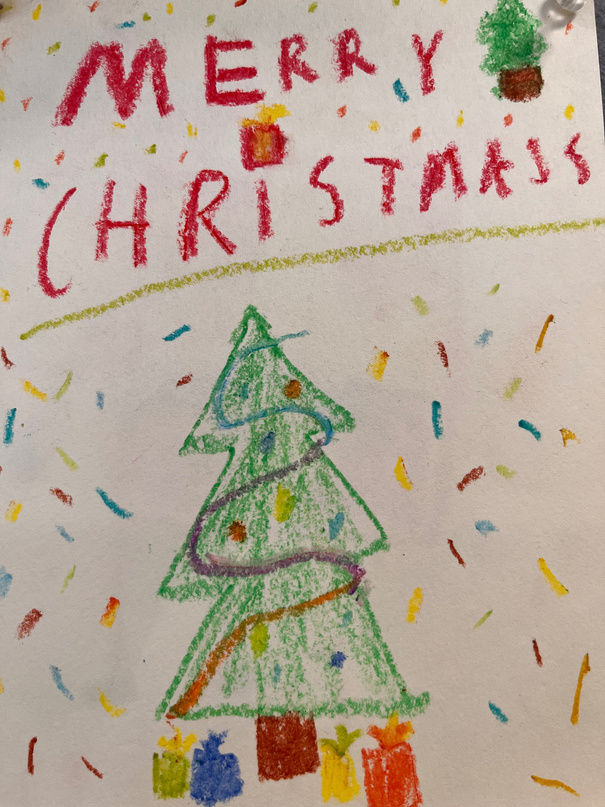 MERRY
CHRISTMASS